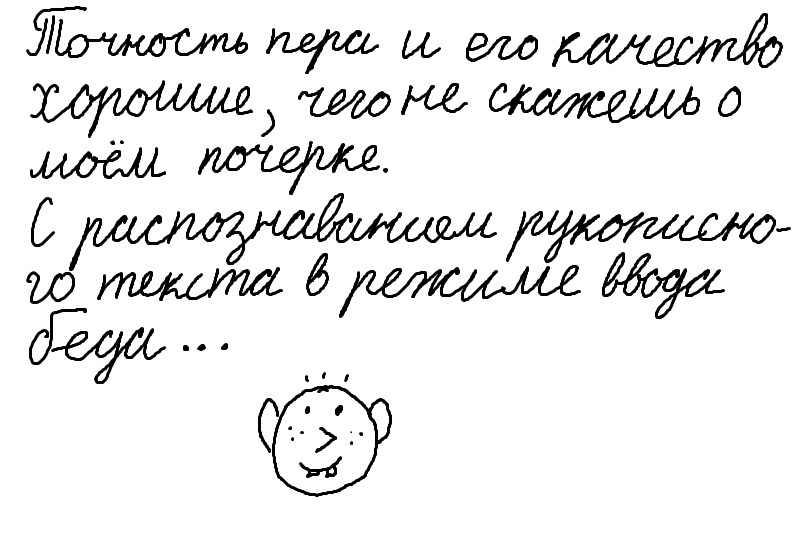 Точность пера и его качество
хорошие, чего не скажешь о
моём почерке.
С распознаванием рукописно-
го текста в режиме ввода
беда...